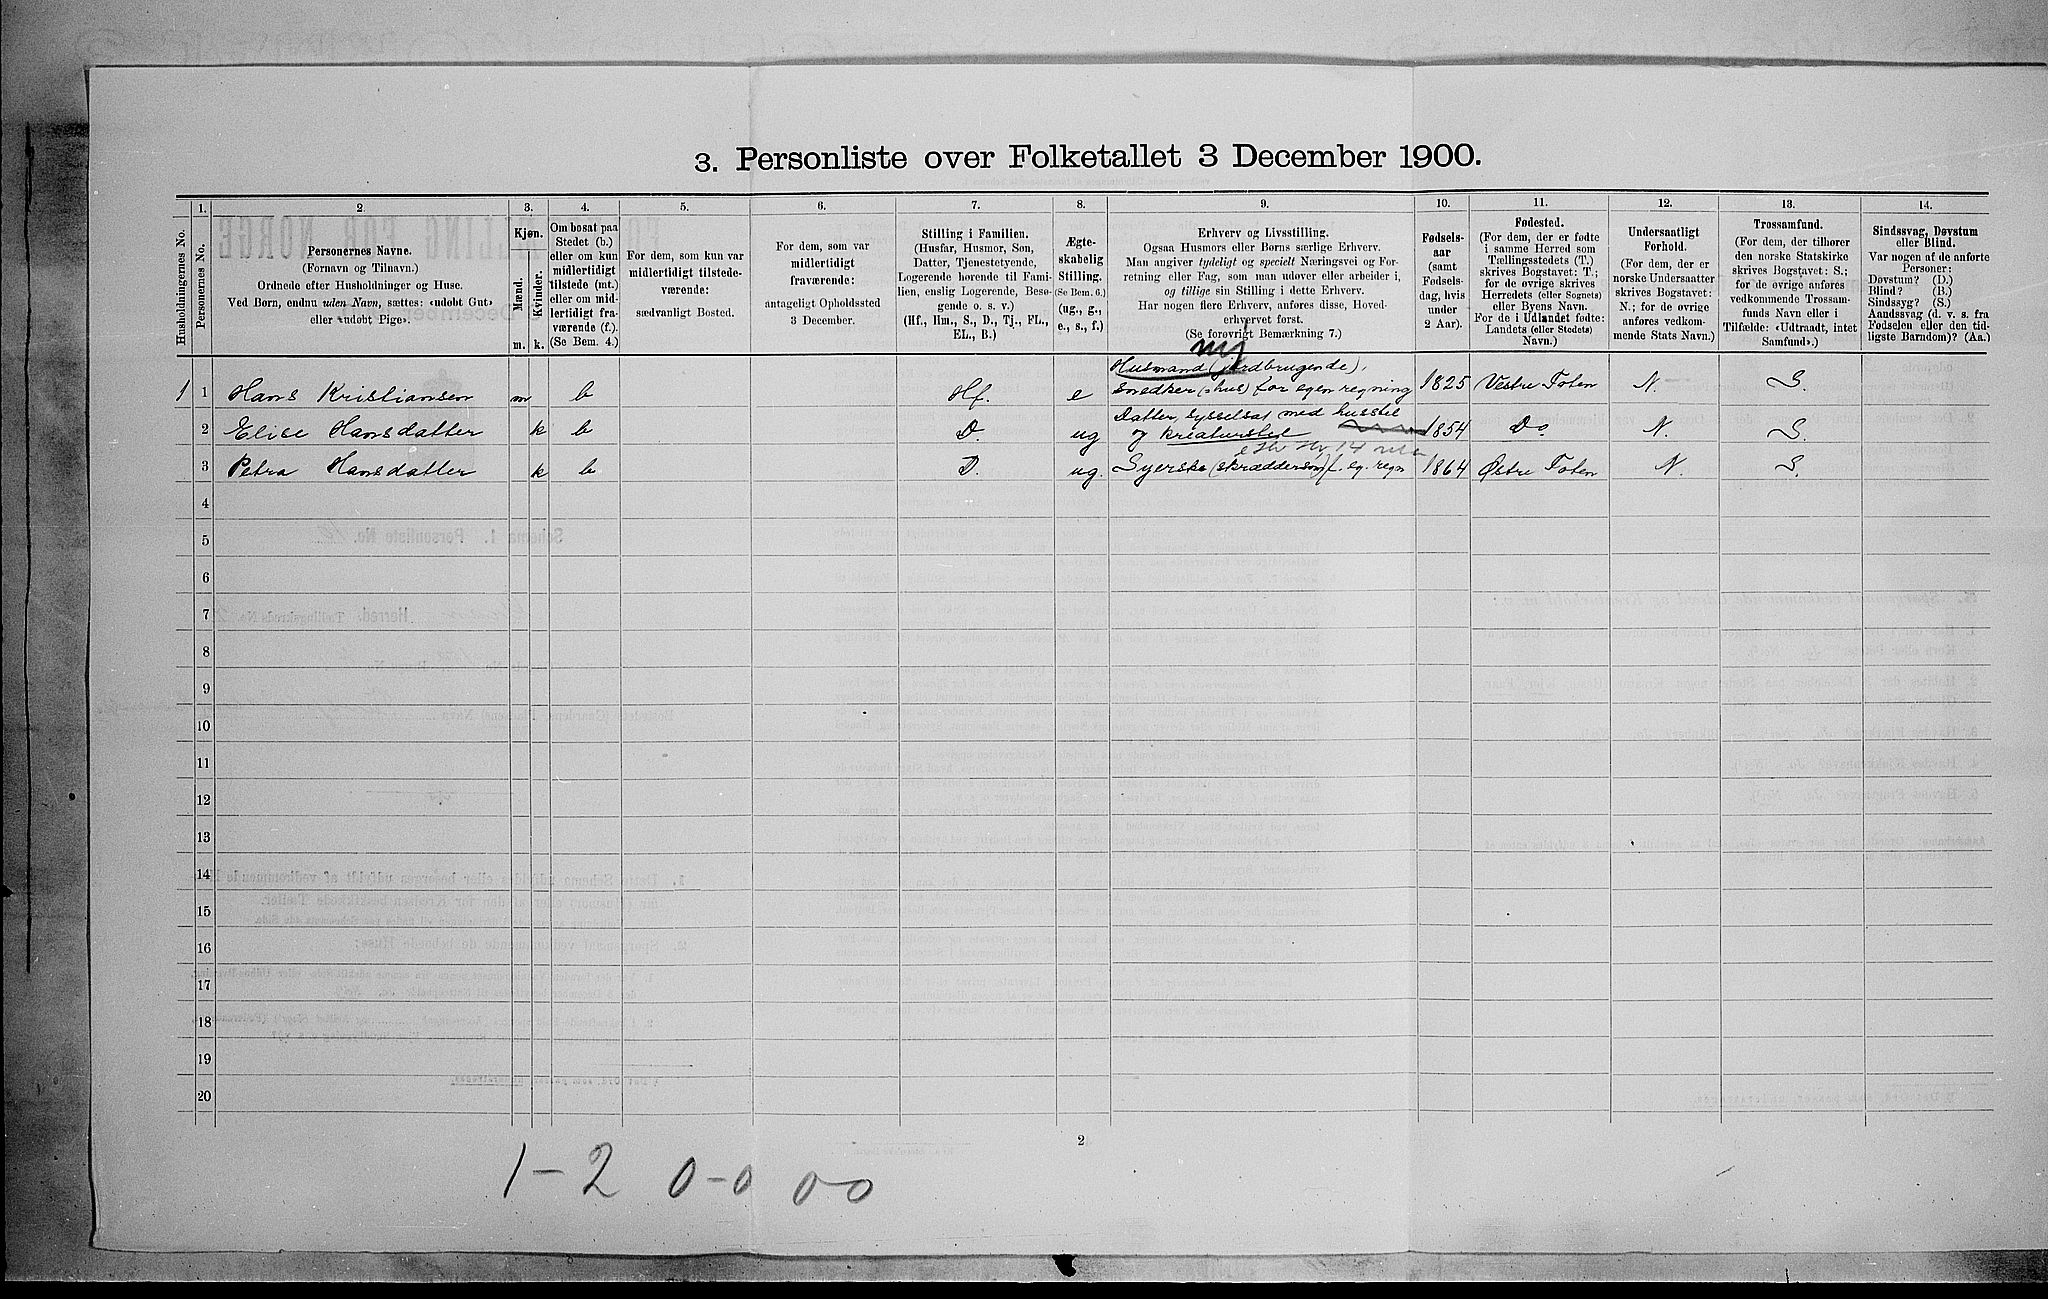 3. Personliste over Folketallet 3 December 1900.
1. 2. 3. 4. 5. 6. 7. 8. 9. 10. 11. 12. 13. 14.
Husholdningernes No.
Personernes No.
Personernes Navne.
(Fornavn og Tilnavn.)
Ordnede efter Husholdninger og Huse.
Ved Børn, endnu uden Navn, sættes: «udøbt Gut»
eller «udøbt Pige».
Kjøn.
Mænd.
Kvinder.
m. k.
Om bosat paa
Stedet (b.)
eller om kun
midlertidigt
tilstede (mt.)
eller om mid-
lertidigt fra-
værende (f.).
(Se Bem. 4.)
For dem, som kun var
midlertidigt tilstede-
værende:
sædvanligt Bosted.
For dem, som var
midlertidigt
fraværende:
antageligt Opholdssted
3 December.
Stilling i Familien.
(Husfar, Husmor, Søn,
Datter, Tjenestetyende,
Logerende hørende til Fami-
lien, enslig Logerende, Besø-
gende o. s. v.)
(Hf., Hm., S., D., Tj., FL.,
EL., B.)
Ægte-
skabelig
Stilling.
(Se Bem. 6.)
(ug., g.,
e., s., f.)
Erhverv og Livsstilling.
Ogsaa Husmors eller Børns særlige Erhverv.
Man angiver tydeligt og specielt Næringsvei og For-
retning eller Fag, som man udøver eller arbeider i,
og tillige sin Stilling i dette Erhverv.
Har nogen flere Erhverv, anføres disse, Hoved-
erhvervet først.
(Se forøvrigt Bemærkning 7.)
Fødsels-
aar
(samt
Fødsels-
dag, hvis
under
2 Aar).
Fødested.
(For dem, der er fødte
i samme Herred som
Tællingsstedets (T.)
skrives Bogstavet: T.;
for de øvrige skrives
Herredets (eller Sognets)
eller Byens Navn.
For de i Udlandet fødte:
Landets (eller Stedets)
Navn.)
Undersaatligt
Forhold.
(For dem, der er
norske Undersaatter
skrives Bogstavet:
N.; for de øvrige
anføres vedkom-
mende Stats Navn.)
Trossamfund.
(For dem, der tilhører
den norske Statskirke
skrives Bogstavet: S.;
for de øvrige anføres
vedkommende Trossam-
funds Navn eller i
Tilfælde: «Udtraadt, intet
Samfund».)
Sindssvag, Døvstum
eller Blind.
Var nogen af de anførte
Personer:
Døvstum? (D.)
Blind? (B.)
Sindssyg? (S.)
Aandssvag (d. v. s. fra
Fødselen eller den tid-
ligste Barndom)? (Aa.)
Husmand (jordbrugende),
1 1 Hans Kristiansen m b Hf. e Snedker (hus) for egen regning 1825 Vestre Toten N. S.
Datter, sysselsat med husstel
2 Elise Hansdatter k b D. ug og kreaturstel 1854 Do N. S.
3 Petra Hansdatter k b D. ug. Syerske (skræddersøm) f. eg. regn 1864 Østre Toten N. S.
4
5
6
7
8
9
10
11
12
13
14
15
16
17
18
19
20
2
1-2 0-0 0 0